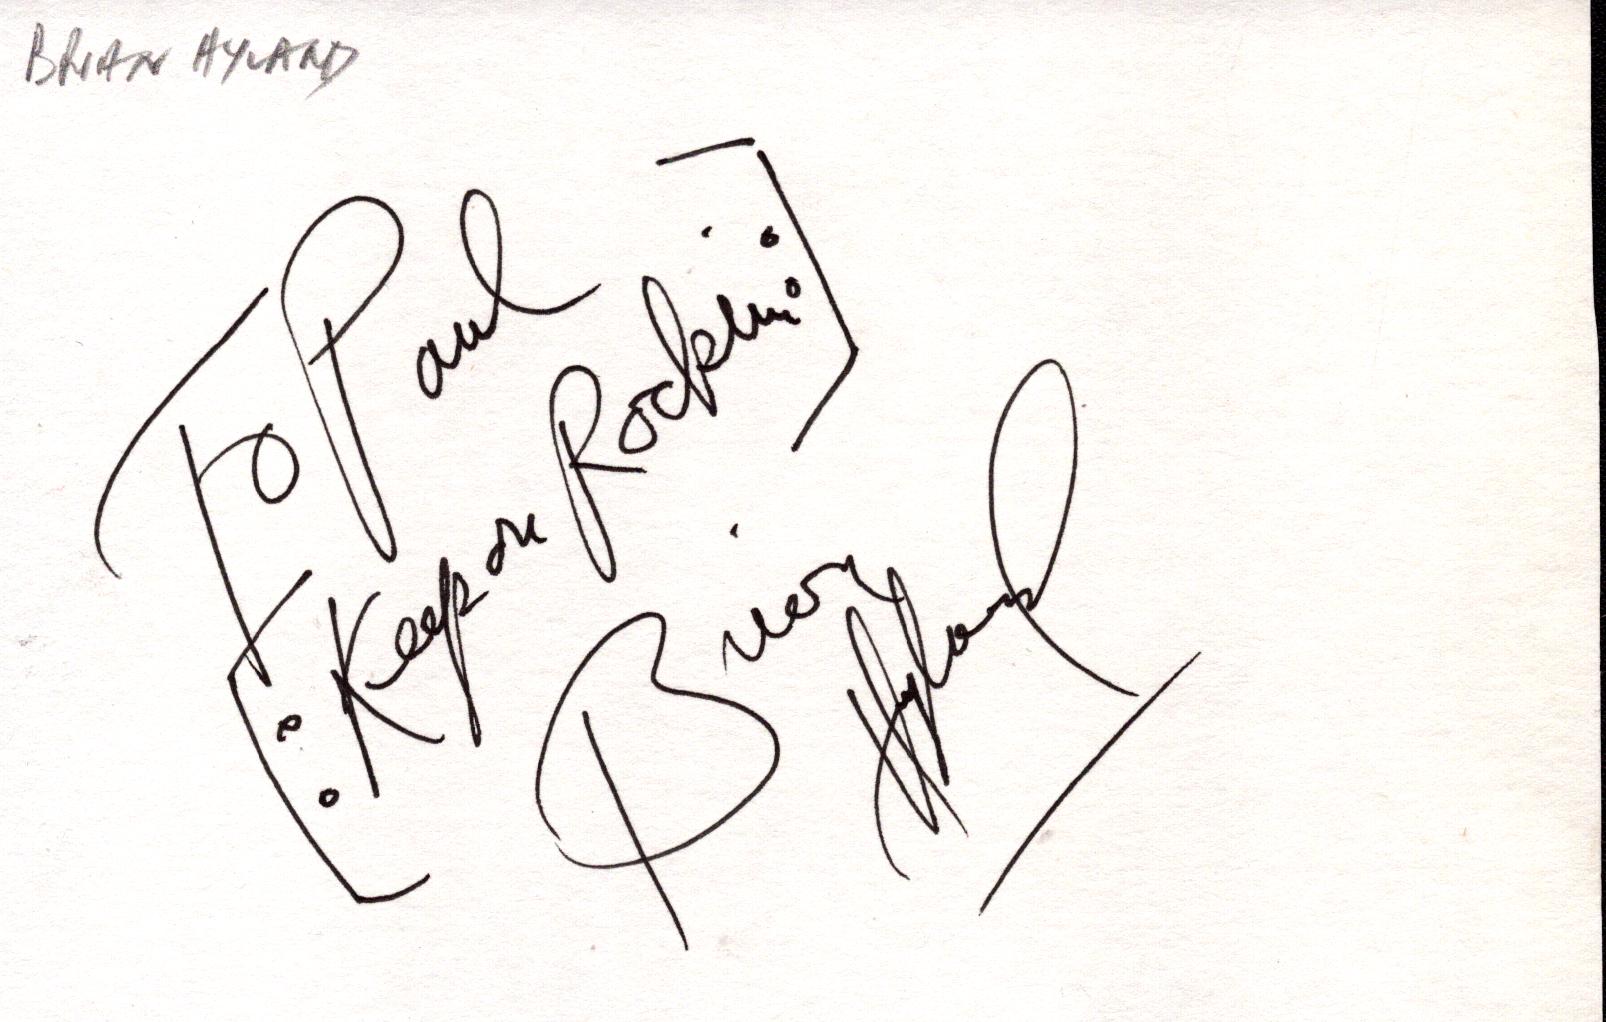 BRIAN HYLAND
To Paul
Keep on Rockin
Brian Hyland